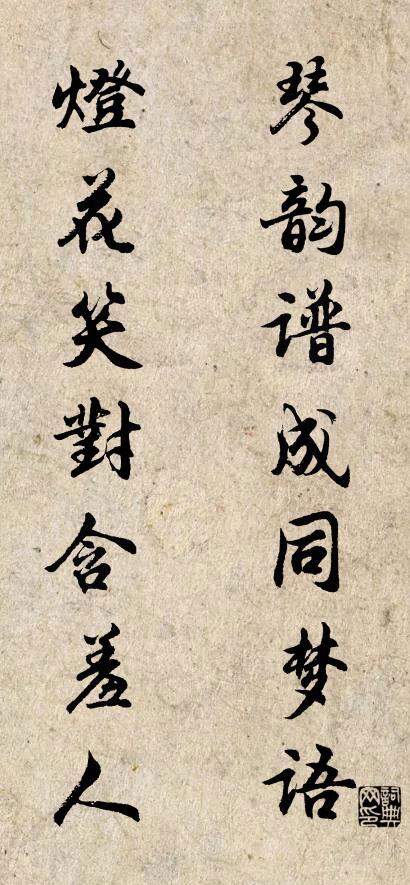 琴韵谱成同梦语
燈花笑對含羞人
詞典网印